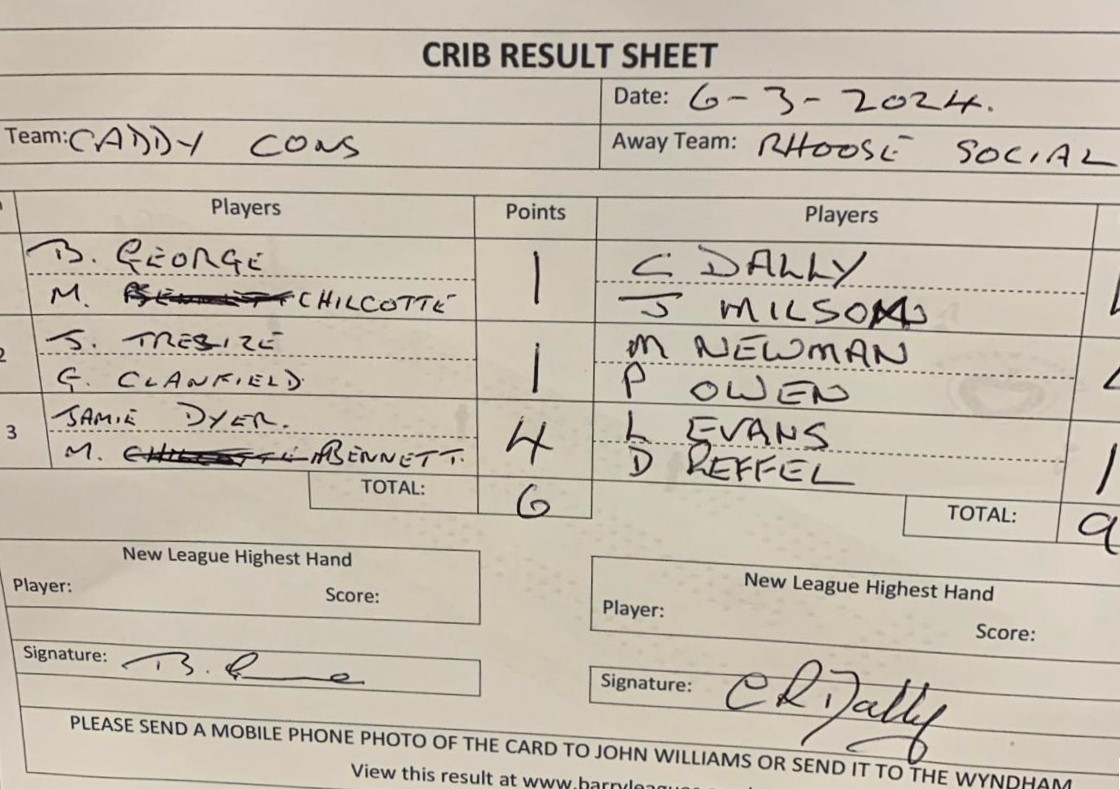 CRIB RESULT SHEET
Date: 6-3-2024.
Team: CADDY CONS Away Team: RHOOSE SOCIAL
Players Points Players
B. GEORGE 1 C DALLY
M. CHILCOTTE J MILSOM
2 S. TRESIZE 1 M NEWMAN
G. CLANFIELD P OWEN
3 JAMIE DYER. 4 L EVANS 1
M. BENNETT. D REFFEL
TOTAL: 6 TOTAL: 9
New League Highest Hand New League Highest Hand
Player: Score: Player: Score:
Signature: B. Signature: C R Dally
PLEASE SEND A MOBILE PHONE PHOTO OF THE CARD TO JOHN WILLIAMS OR SEND IT TO THE WYNDHAM
View this result at